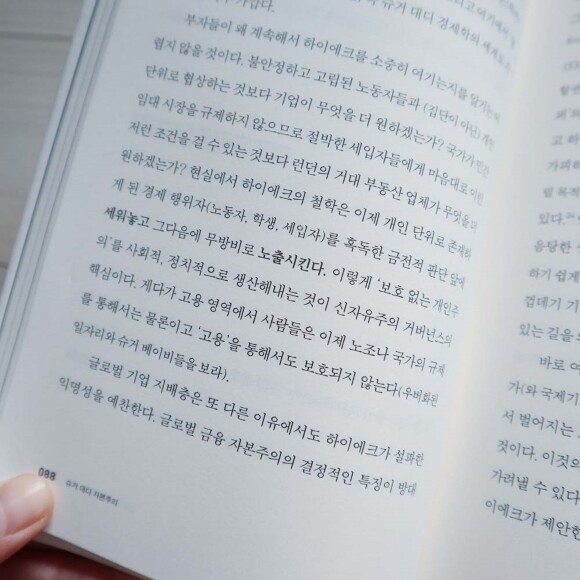 슈거 대디 경제학의 세계로
부자들이 왜 계속해서 하이에크를 소중히 여기는지를 알기는 어
렵지 않을 것이다. 불안정하고 고립된 노동자들과 (집단이 아닌) 개인
단위로 협상하는 것보다 기업이 무엇을 더 원하겠는가? 국가가 민간
임대 시장을 규제하지 않으므로 절박한 세입자들에게 마음대로 이런
저런 조건을 걸 수 있는 것보다 런던의 거대 부동산 업체가 무엇을 더
원하겠는가? 현실에서 하이에크의 철학은 이제 개인 단위로 존재하
게 된 경제 행위자(노동자, 학생, 세입자)를 혹독한 금전적 판단 앞에
세워놓고 그다음에 무방비로 노출시킨다. 이렇게 ‘보호 없는 개인주
의’를 사회적, 정치적으로 생산해내는 것이 신자유주의 거버넌스의
핵심이다. 게다가 고용 영역에서 사람들은 이제 노조나 국가의 규제
를 통해서는 물론이고 ‘고용’을 통해서도 보호되지 않는다(우버화된
일자리와 슈거 베이비들을 보라).
글로벌 기업 지배층은 또 다른 이유에서도 하이에크가 설파한
익명성을 예찬한다. 글로벌 금융 자본주의의 결정적인 특징이 방대
088
슈거 대디 자본주의
고 하
가피하
릴 목적
있다.
음당한
하기 쉽게
껍데기 기
있는 길을
바로 여
가(와 국제기
서 벌어지는
것이다. 이것의
가려낼 수 있다
이에크가 제안한